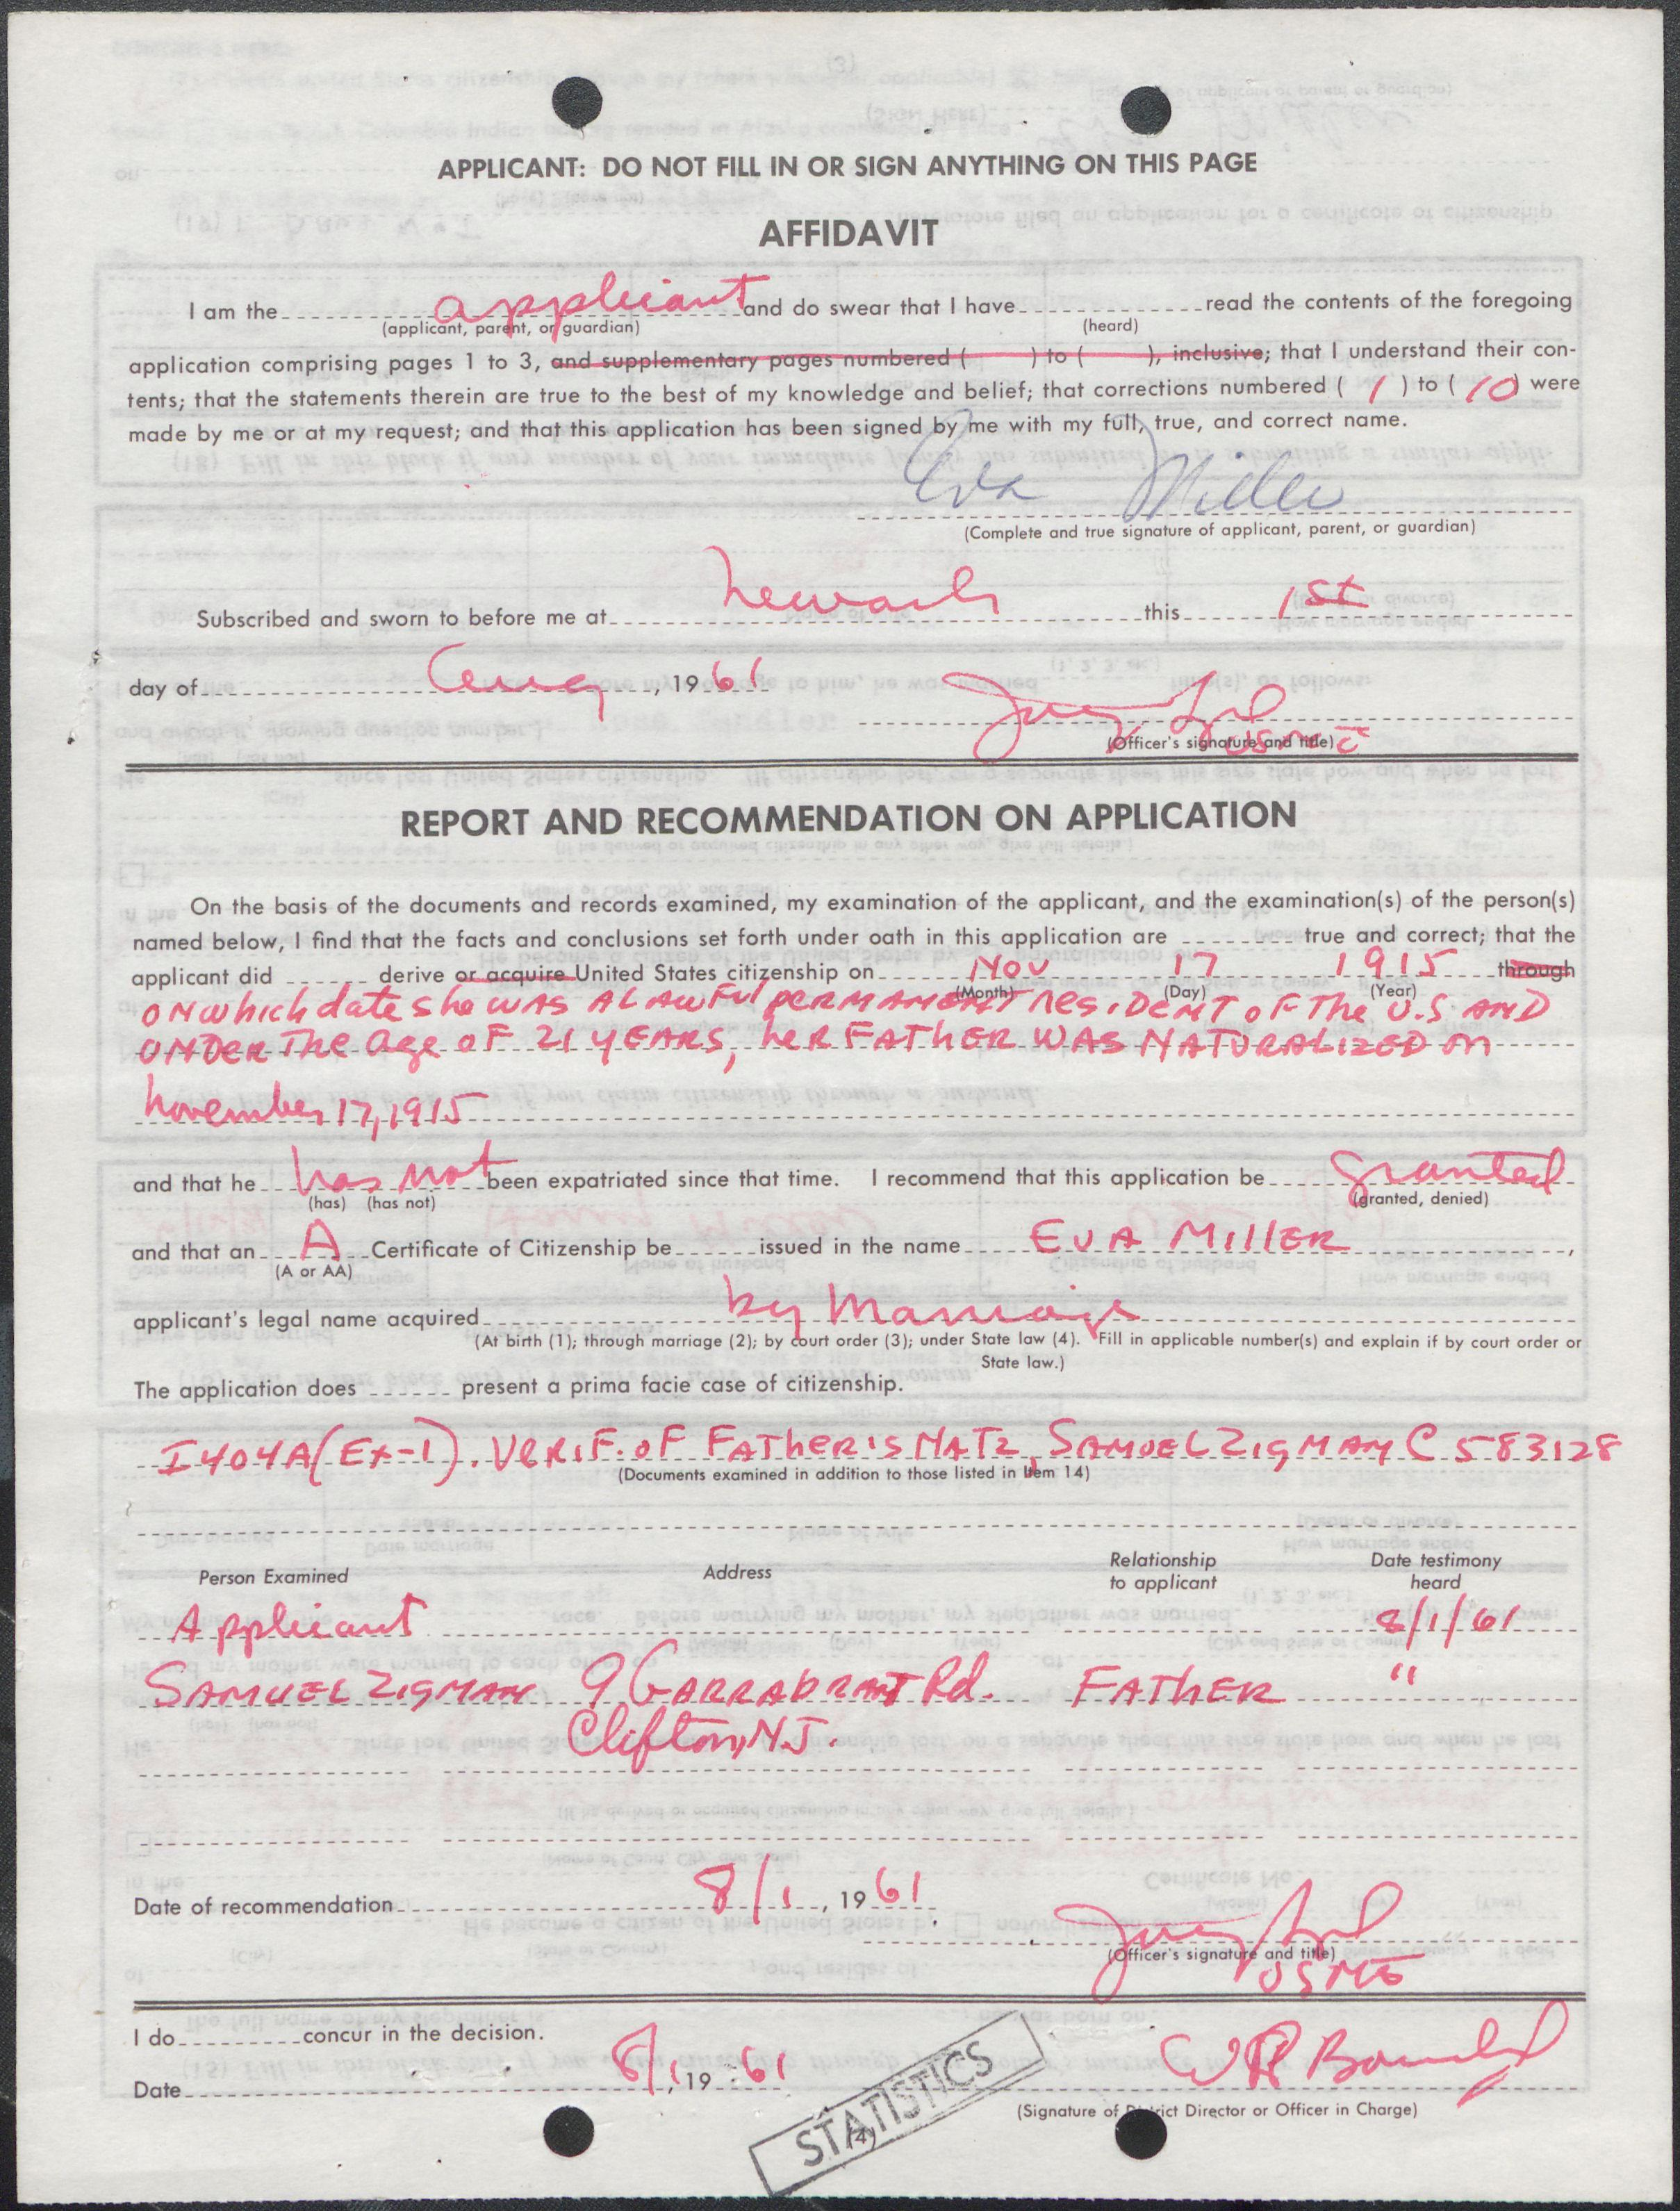 APPLICANT: DO NOT FILL IN OR SIGN ANYTHING ON THIS PAGE
AFFIDAVIT
I am the applicant and do swear that I have read the contents of the foregoing
(applicant, parent, or guardian) (heard)
application comprising pages 1 to 3, and supplementary pages numbered ( ) to ( ), inclusive; that I understand their con-
tents; that the statements therein are true to the best of my knowledge and belief; that corrections numbered ( 1 ) to ( 10 ) were
made by me or at my request; and that this application has been signed by me with my full, true, and correct name.
Eva Miller
(Complete and true signature of applicant, parent, or guardian)
Subscribed and sworn to before me at Newark this 1st
day of Aug, 1961
(Officer's signature and title)
REPORT AND RECOMMENDATION ON APPLICATION
On the basis of the documents and records examined, my examination of the applicant, and the examination(s) of the person(s)
named below, I find that the facts and conclusions set forth under oath in this application are true and correct; that the
applicant did derive or acquire United States citizenship on Nov 17 1915 through
(Month) (Day) (Year)
ON which date she WAS A LAWFUL PERMANENT RESIDENT OF The U.S AND
UNDER The Age OF 21 YEARS, her FATHER WAS NATURALIZED on
November 17, 1915
and that he has not been expatriated since that time. I recommend that this application be Granted
(has) (has not) (granted, denied)
and that an A Certificate of Citizenship be issued in the name EVA MILLER,
(A or AA)
applicant's legal name acquired by Marriage
(At birth (1); through marriage (2); by court order (3); under State law (4). Fill in applicable number(s) and explain if by court order or
State law.)
The application does present a prima facie case of citizenship.
I404A(Ex-1). VERIF. OF FATHER'S NATZ, SAMUEL ZIGMAN C 583128
(Documents examined in addition to those listed in Item 14)
Person Examined Address Relationship to applicant Date testimony heard
Applicant 8/1/61
SAMUEL ZIGMAN 9 GARRABRANT Rd. FATHER "
Clifton, N.J.
Date of recommendation 8/1, 1961
(Officer's signature and title)
I do concur in the decision.
Date 8/1, 19 61
(Signature of District Director or Officer in Charge)
STATISTICS
(4)